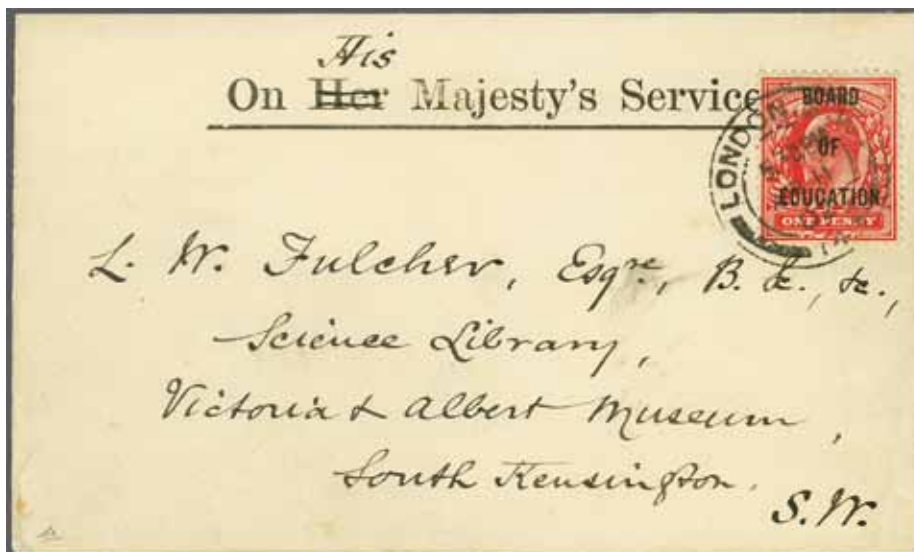 His
On Her Majesty's Service
BOARD
OF
EDUCATION
ONE PENNY
LONDON
L. W. Fulcher, Esqre, B. Sc., &c.,
Science Library,
Victoria & Albert Museum,
South Kensington.
S.W.